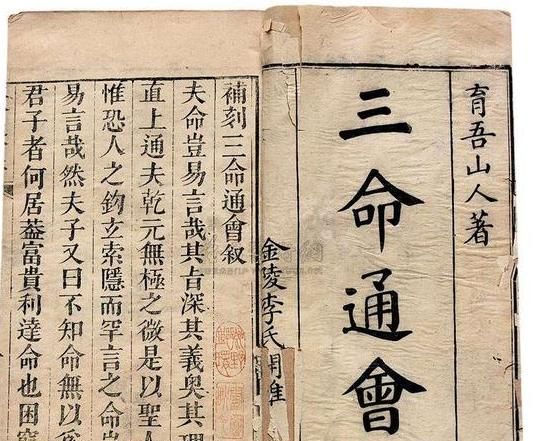 育吾山人著
三命通會
金陵李氏
補刻三命通會叙
夫命豈易言哉其旨深其義奥其理
直上通夫乾元無極之微是以聖人
惟恐人之鉤玄索隱而罕言之命
易言哉然夫子又曰不知命無以爲
君子者何居葢富貴利達命也困窮